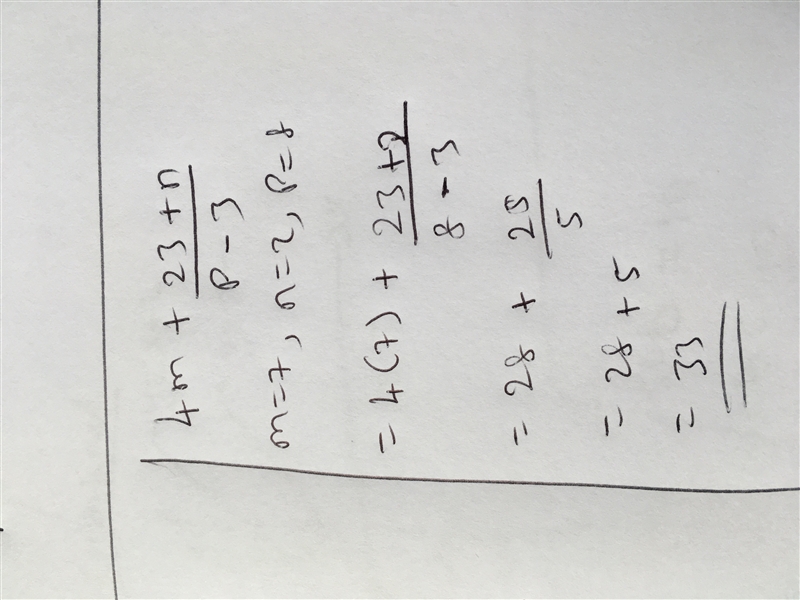 4m + (23 + n)/(p - 3)
m=7, n=2, p=8
= 4(7) + (23+2)/(8 - 3)
= 28 + 25/5
= 28 + 5
= 33